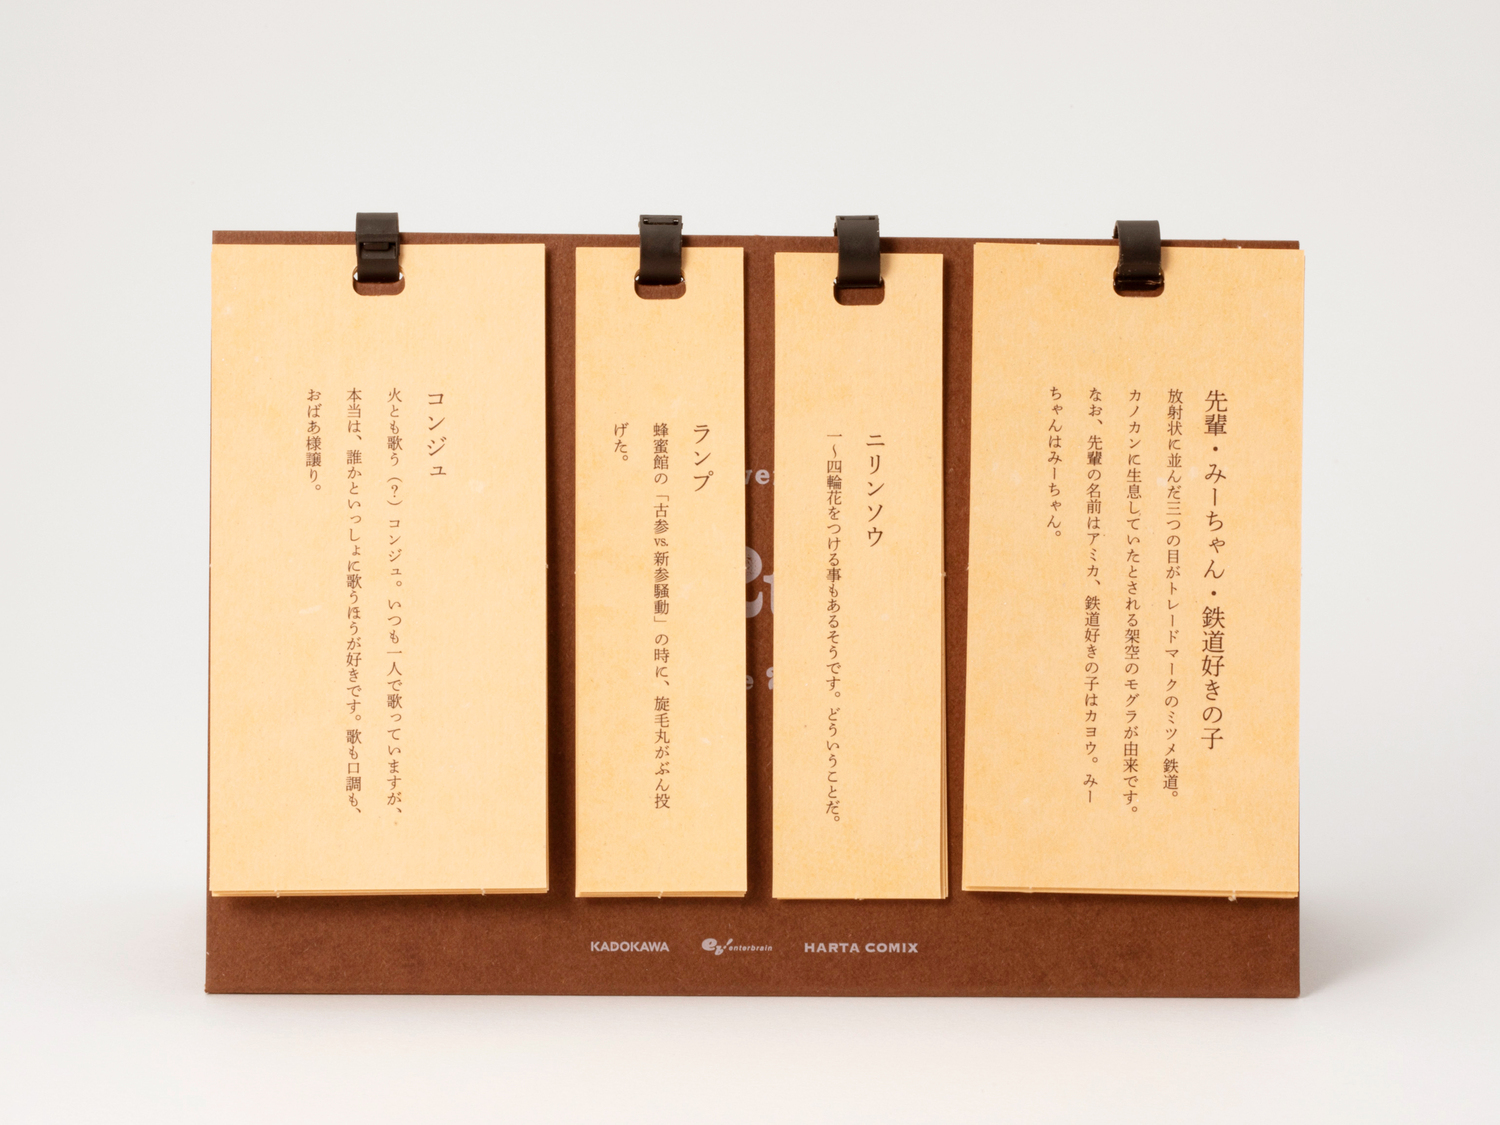 先輩・みーちゃん・鉄道好きの子
放射状に並んだ三つの目がトレードマークのミツメ鉄道。
カノカンに生息していたとされる架空のモグラが由来です。
なお、先輩の名前はアミカ、鉄道好きの子はカヨウ。みー
ちゃんはみーちゃん。
ニリンソウ
一〜四輪花をつける事もあるそうです。どういうことだ。
ランプ
蜂蜜館の「古参vs.新参騒動」の時に、旋毛丸がぶん投
げた。
コンジュ
火とも歌う（?）コンジュ。いつも一人で歌っていますが、
本当は、誰かといっしょに歌うほうが好きです。歌も口調も、
おばあ様譲り。
KADOKAWA
enterbrain
HARTA COMIX